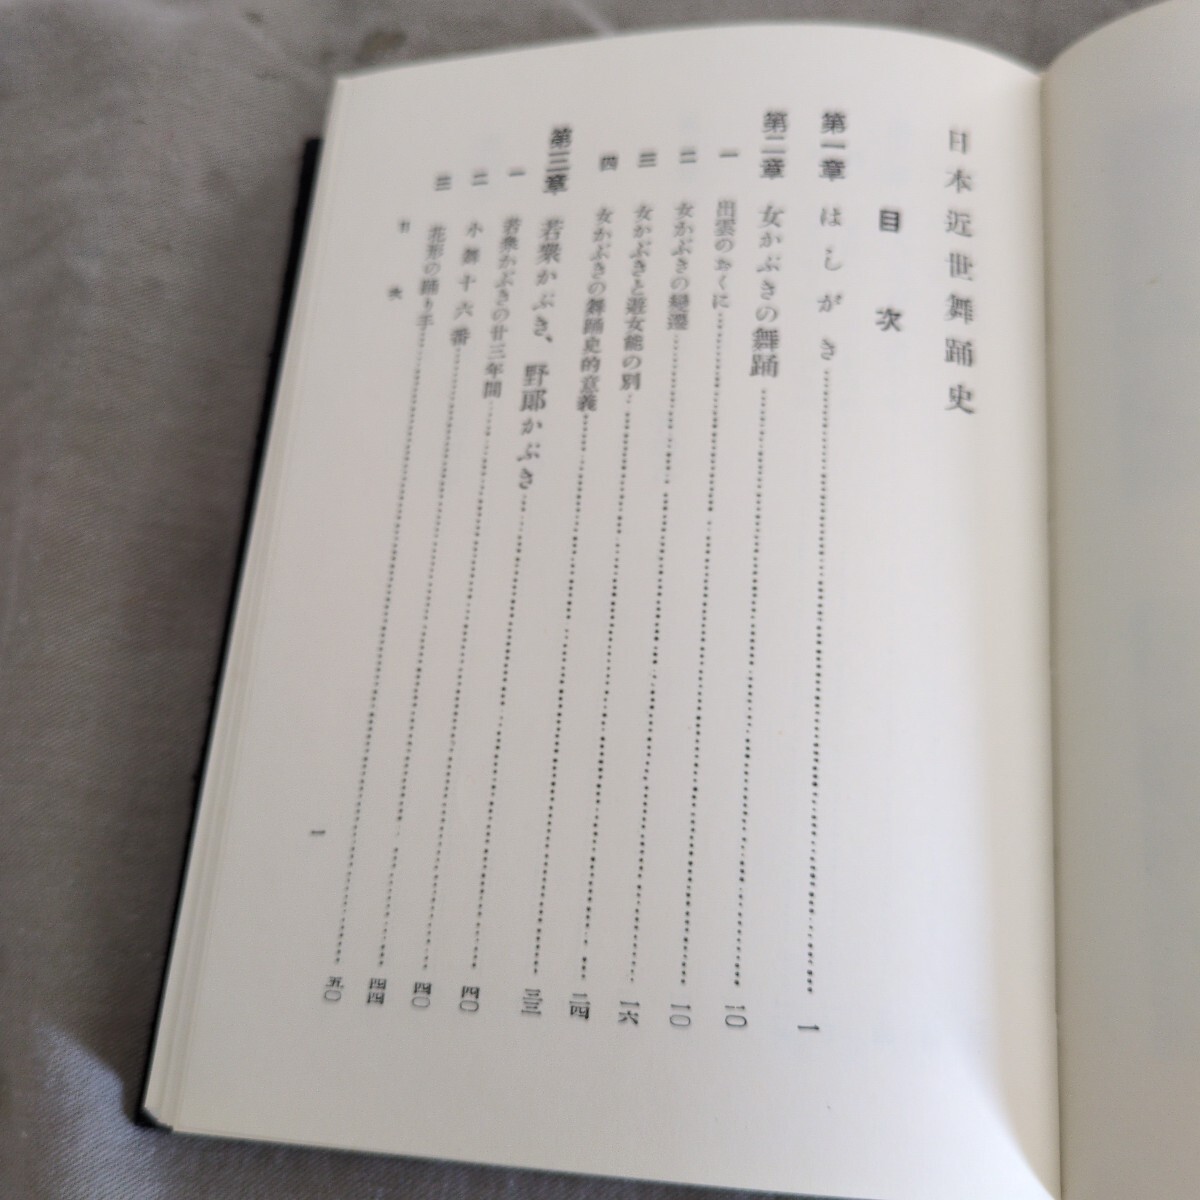 日本近世舞踊史
目次
第一章 はしがき……一
第二章 女かぶきの舞踊……一〇
一 出雲のおくに……一〇
二 女かぶきの變遷……一六
三 女かぶきと遊女能の別……二四
四 女かぶきの舞踊史的意義……三三
第三章 若衆かぶき、野郎かぶき……四〇
一 若衆かぶきの廿三年間……四〇
二 小舞十六番……四四
三 花形の踊り手……五〇
目次
一